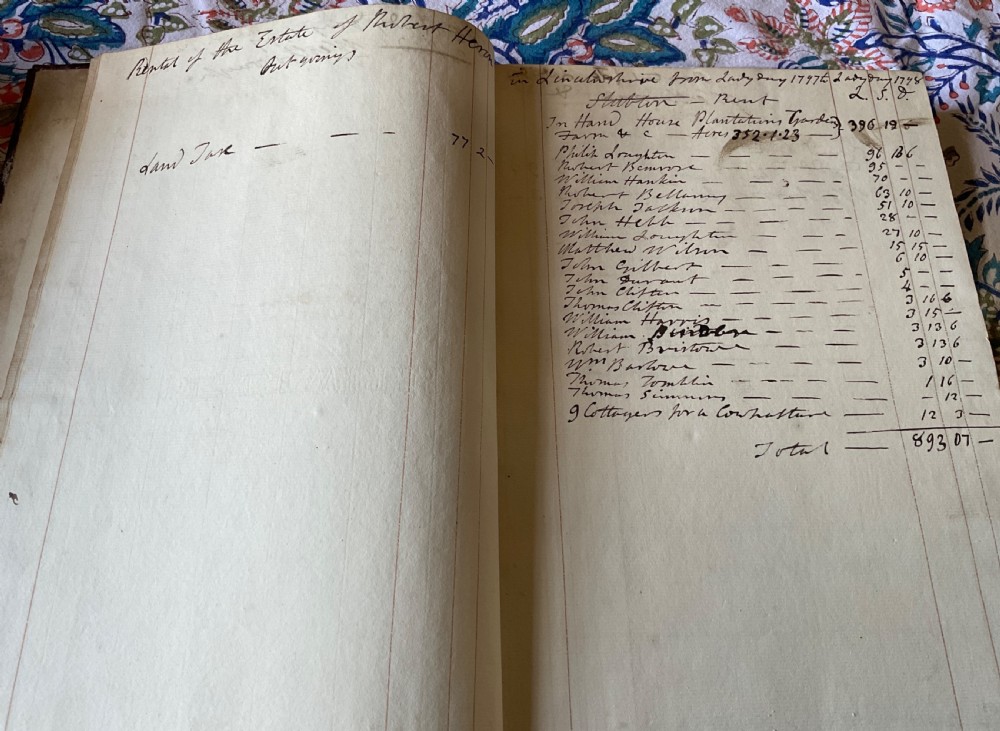 Rental of the Estate of Robert Heron
Outgoings
Land Tax — — - 77 2 -
in Lincolnshire from Ladyday 1797 to Ladyday 1798
Stubton — Rent L. S. D.
In Hand House Plantations Gardens
Farm & c — Acres 352.1.23 — } 396 19 -
Philip Loughton — — — — — 96 13 6
Robert Bemrose — — — — 95 — —
William Hankin — — — — 70 — —
Robert Bellamy — — — — 63 10 —
Joseph Jackson — — — — 51 10 —
John Hebb — — — — — 28 - —
William Loughton — — — — 27 10 —
Matthew Wilson — — — — 15 15 —
John Gilbert — — — — 6 10 —
John Durant — — — — 5 — —
John Clifton — — — — 4 — —
Thomas Clifton — — — — 3 16 6
William Harris — — — — 3 15 —
William — — — — 3 13 6
Robert Bristowe — — — — 3 13 6
Wm Barlowe — — — — 3 10 —
Thomas Tomblin — — — — 1 16 —
Thomas Simmons — — — — - 12 —
9 Cottagers for a Cowpasture — 12 3 —
Total — 893 07 —